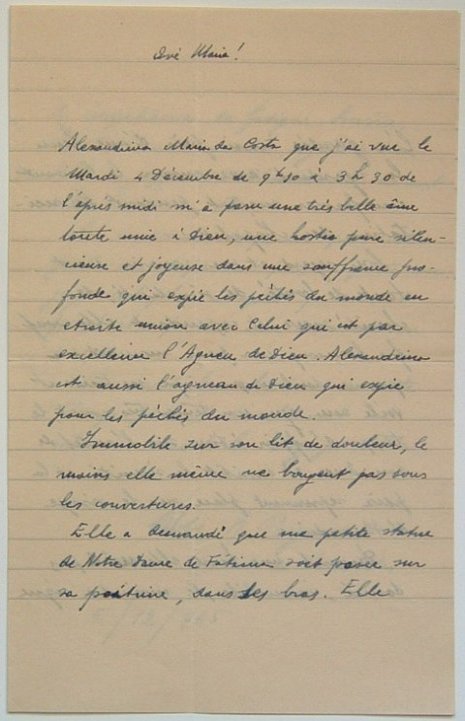 Avé Maria!
Alexandrina Maria da Costa que j'ai vue le
Mardi 4 Décembre de 9h30 à 3h30 de
l'après midi m'a paru une très belle âme
toute unie à Dieu, une hostie pure silen-
cieuse et joyeuse dans une souffrance pro-
fonde qui expie les péchés du monde en
etroite union avec Celui qui est par
excellence l'Agneau de Dieu. Alexandrina
est aussi l'agneau de Dieu qui expie
pour les péchés du monde.
Immobile sur son lit de douleur, les
mains elle même ne bougent pas sous
les couvertures.
Elle a demandé que ma petite statue
de Notre Dame de Fatima soit posée sur
sa poitrine, dans ses bras. Elle